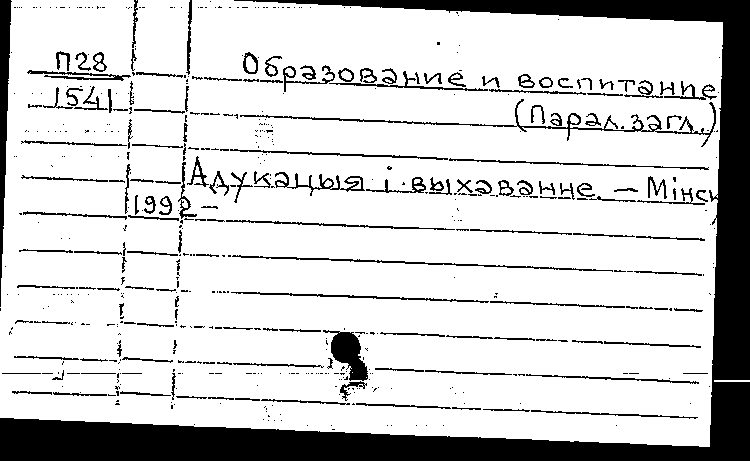 П28
1541
Образование и воспитание
(Парал. загл.)
Адукацыя і выхаванне. — Мінск,
1992 —